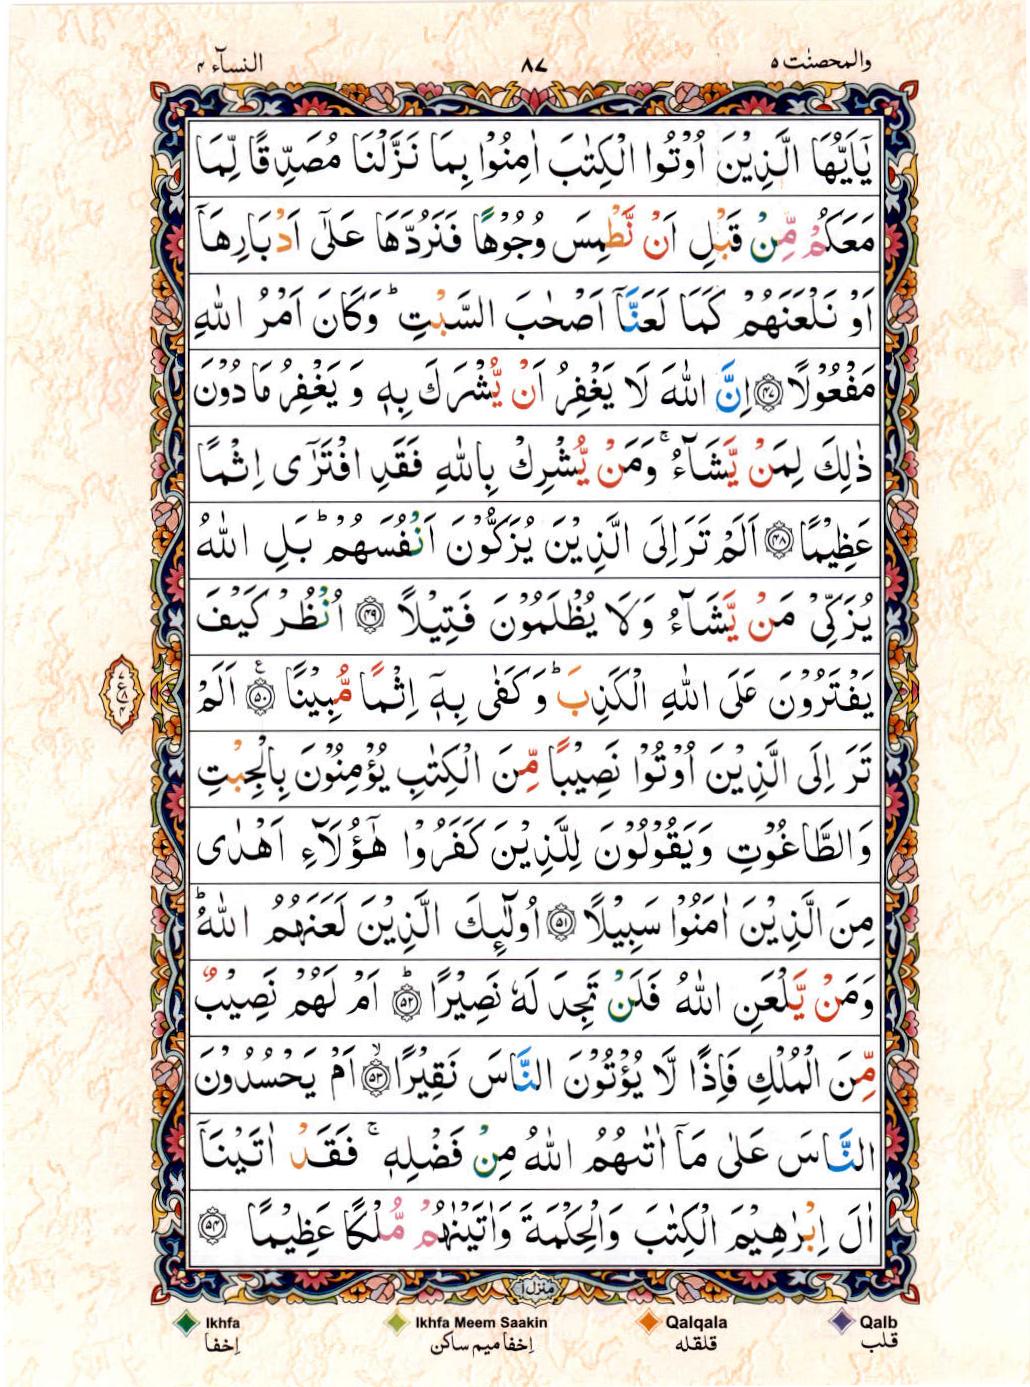 والمحصنٰت ۵
۸۷
النسآء ۴
يٰۤاَيُّهَا الَّذِيْنَ اُوْتُوا الْكِتٰبَ اٰمِنُوْا بِمَا نَزَّلْنَا مُصَدِّقًا لِّمَا
مَعَكُمْ مِّنْ قَبْلِ اَنْ نَّطْمِسَ وُجُوْهًا فَنَرُدَّهَا عَلٰۤى اَدْبَارِهَاۤ
اَوْ نَلْعَنَهُمْ كَمَا لَعَنَّاۤ اَصْحٰبَ السَّبْتِ ؕ وَكَانَ اَمْرُ اللّٰهِ
مَفْعُوْلًا ﴿۴۷﴾ اِنَّ اللّٰهَ لَا يَغْفِرُ اَنْ يُّشْرَكَ بِهٖ وَ يَغْفِرُ مَا دُوْنَ
ذٰلِكَ لِمَنْ يَّشَآءُ ۚ وَمَنْ يُّشْرِكْ بِاللّٰهِ فَقَدِ افْتَرٰۤى اِثْمًا
عَظِيْمًا ﴿۴۸﴾ اَلَمْ تَرَ اِلَى الَّذِيْنَ يُزَكُّوْنَ اَنْفُسَهُمْ ؕ بَلِ اللّٰهُ
يُزَكِّىْ مَنْ يَّشَآءُ وَلَا يُظْلَمُوْنَ فَتِيْلًا ﴿۴۹﴾ اُنْظُرْ كَيْفَ
يَفْتَرُوْنَ عَلَى اللّٰهِ الْكَذِبَ ؕ وَكَفٰى بِهٖۤ اِثْمًا مُّبِيْنًا ﴿۵۰﴾ ع اَلَمْ
تَرَ اِلَى الَّذِيْنَ اُوْتُوْا نَصِيْبًا مِّنَ الْكِتٰبِ يُؤْمِنُوْنَ بِالْجِبْتِ
وَالطَّاغُوْتِ وَيَقُوْلُوْنَ لِلَّذِيْنَ كَفَرُوْا هٰۤؤُلَآءِ اَهْدٰى
مِنَ الَّذِيْنَ اٰمَنُوْا سَبِيْلًا ﴿۵۱﴾ اُولٰٓئِكَ الَّذِيْنَ لَعَنَهُمُ اللّٰهُ ؕ
وَمَنْ يَّلْعَنِ اللّٰهُ فَلَنْ تَجِدَ لَهٗ نَصِيْرًا ﴿۵۲﴾ ؕ اَمْ لَهُمْ نَصِيْبٌ
مِّنَ الْمُلْكِ فَاِذًا لَّا يُؤْتُوْنَ النَّاسَ نَقِيْرًا ﴿۵۳﴾ ۙ اَمْ يَحْسُدُوْنَ
النَّاسَ عَلٰى مَاۤ اٰتٰىهُمُ اللّٰهُ مِنْ فَضْلِهٖ ۚ فَقَدْ اٰتَيْنَاۤ
اٰلَ اِبْرٰهِيْمَ الْكِتٰبَ وَالْحِكْمَةَ وَاٰتَيْنٰهُمْ مُّلْكًا عَظِيْمًا ﴿۵۴﴾
منزل ۱
Ikhfa
Ikhfa Meem Saakin
Qalqala
Qalb
اِخفا
اِخفا میم ساکن
قلقله
قلب